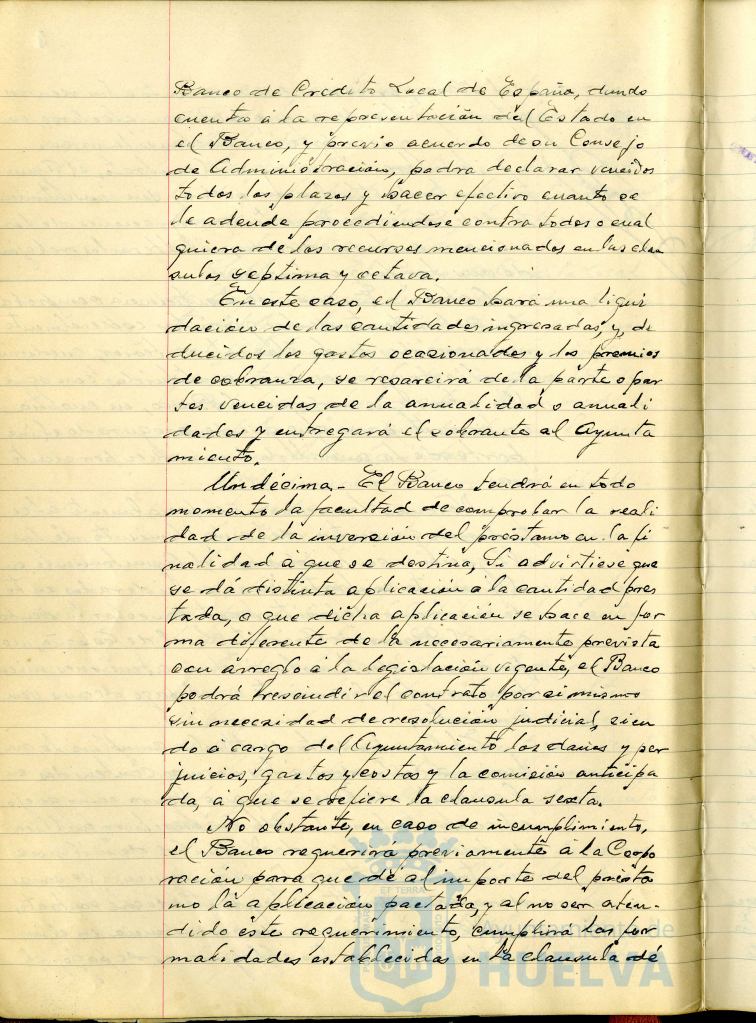 Banco de Crédito Local de España, dando
cuenta á la representación del Estado en
el Banco, y previo acuerdo de su Consejo
de Administración, podra declarar vencidos
todos los plazos y hacer efectivo cuanto se
le adende procediendose contra todos o cual
quiera de los recursos mencionados en las clau
sulas septima y octava.
En este caso, el Banco hará una liqui
dación de las cantidades ingresadas, y, de
ducidos los gastos ocasionados y los premios
de cobranza, se resarcirá de la parte o par
tes vencidas de la anualidad o anuali
dades y entregará el sobrante al Ayunta
miento.
Undécima.- El Banco tendrá en todo
momento la facultad de comprobar la reali
dad de la inversión del préstamo en la fi
nalidad á que se destina, Si advirtiese que
se dá distinta aplicación á la cantidad pres
tada, o que dicha aplicación se hace en for
ma diferente de la necesariamente prevista
con arreglo á la legislación vigente, el Banco
podrá rescindir el contrato por si mismo
sin necesidad de resolución judicial, sien
do á cargo del Ayuntamiento los daños y per
juicios, gastos y costas y la comisión anticipa
da, á que se refiere la clausula sexta.
No obstante, en caso de incumplimiento,
el Banco requerirá previamente á la Corpo
ración para que dé al importe del présta
mo la aplicación pactada, y al no ser aten-
dido este requerimiento, cumplirá las for
malidades establecidas en la clausula dé
Ayuntamiento de
HUELVA